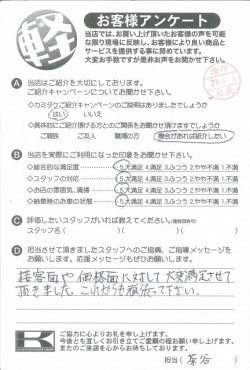 軽
お客様アンケート
当店では、お買い上げ頂いたお客様の声を可能
な限り現場に反映し、お客様により良い商品と
サービスを提供する事に努めています。
大変お手数ですが是非お声をお聞かせ下さい。
A 当店はご紹介を大切にしております。
ご紹介キャンペーンについてお聞かせ下さい。
◇カミタケご紹介キャンペーンのご説明はありましたでしょうか
はい いいえ
◇具体的にご紹介頂ける方とのご関係をお聞かせ頂けますでしょうか
ご親族 ご友人 職場の方 機会があれば紹介したい
B 当店を実際にご利用になった印象をお聞かせ下さい。
◇総合的な満足度 5.大満足 4.満足 3.ふつう 2.やや不満 1.不満
◇スタッフの対応 5.大満足 4.満足 3.ふつう 2.やや不満 1.不満
◇お店の雰囲気、清掃 5.大満足 4.満足 3.ふつう 2.やや不満 1.不満
◇納車時のお車の状態 5.大満足 4.満足 3.ふつう 2.やや不満 1.不満
C 評価したいスタッフがいれば教えてください。
スタッフ名( )( )( )
D 担当させて頂きましたスタッフへのご指摘、ご指導メッセージを
お願いします。応援メッセージもぜひお願いします。
接客面や価格面に対して大変満足させて
頂きました。これからも頑張って下さい。
K
ご協力に心よりお礼を申し上げます。
今後とも宜しくお引き立てご愛顧の程お願い申し上げます。
またのご来店を心からお待ちしております。
担当( 茶谷 )